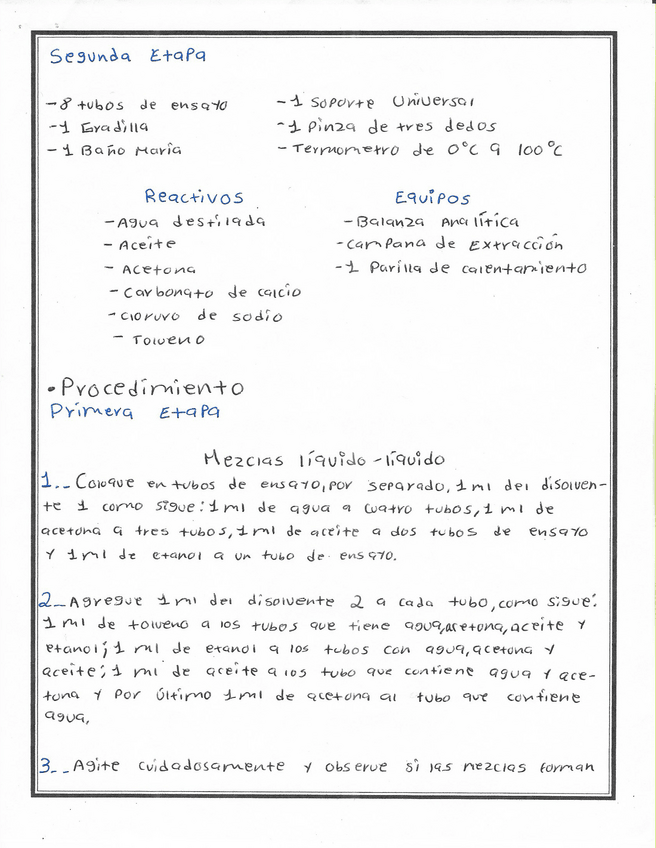 Segunda Etapa
-8 tubos de ensayo
-1 Gradilla
-1 Baño María
-1 Soporte Universal
-1 Pinza de tres dedos
-Termometro de 0°C a 100°C
Reactivos
-Agua destilada
-Aceite
-Acetona
-Carbonato de calcio
-cloruro de sodio
-Tolueno
Equipos
-Balanza Analítica
-campana de Extracción
-1 Parilla de calentamiento
•Procedimiento
Primera Etapa
Mezclas líquido-líquido
1._Coloque en tubos de ensayo, por separado, 1 ml del disolven-
te 1 como sigue: 1 ml de agua a cuatro tubos, 1 ml de
acetona a tres tubos, 1 ml de aceite a dos tubos de ensayo
y 1 ml de etanol a un tubo de ensayo.
2_Agregue 1 ml del disolvente 2 a cada tubo, como sigue:
1 ml de tolueno a los tubos que tiene agua, acetona, aceite y
etanol; 1 ml de etanol a los tubos con agua, acetona y
aceite; 1 ml de aceite a los tubo que contiene agua y ace-
tona y por último 1 ml de acetona al tubo que contiene
agua,
3._Agite cuidadosamente y observe si las mezclas forman